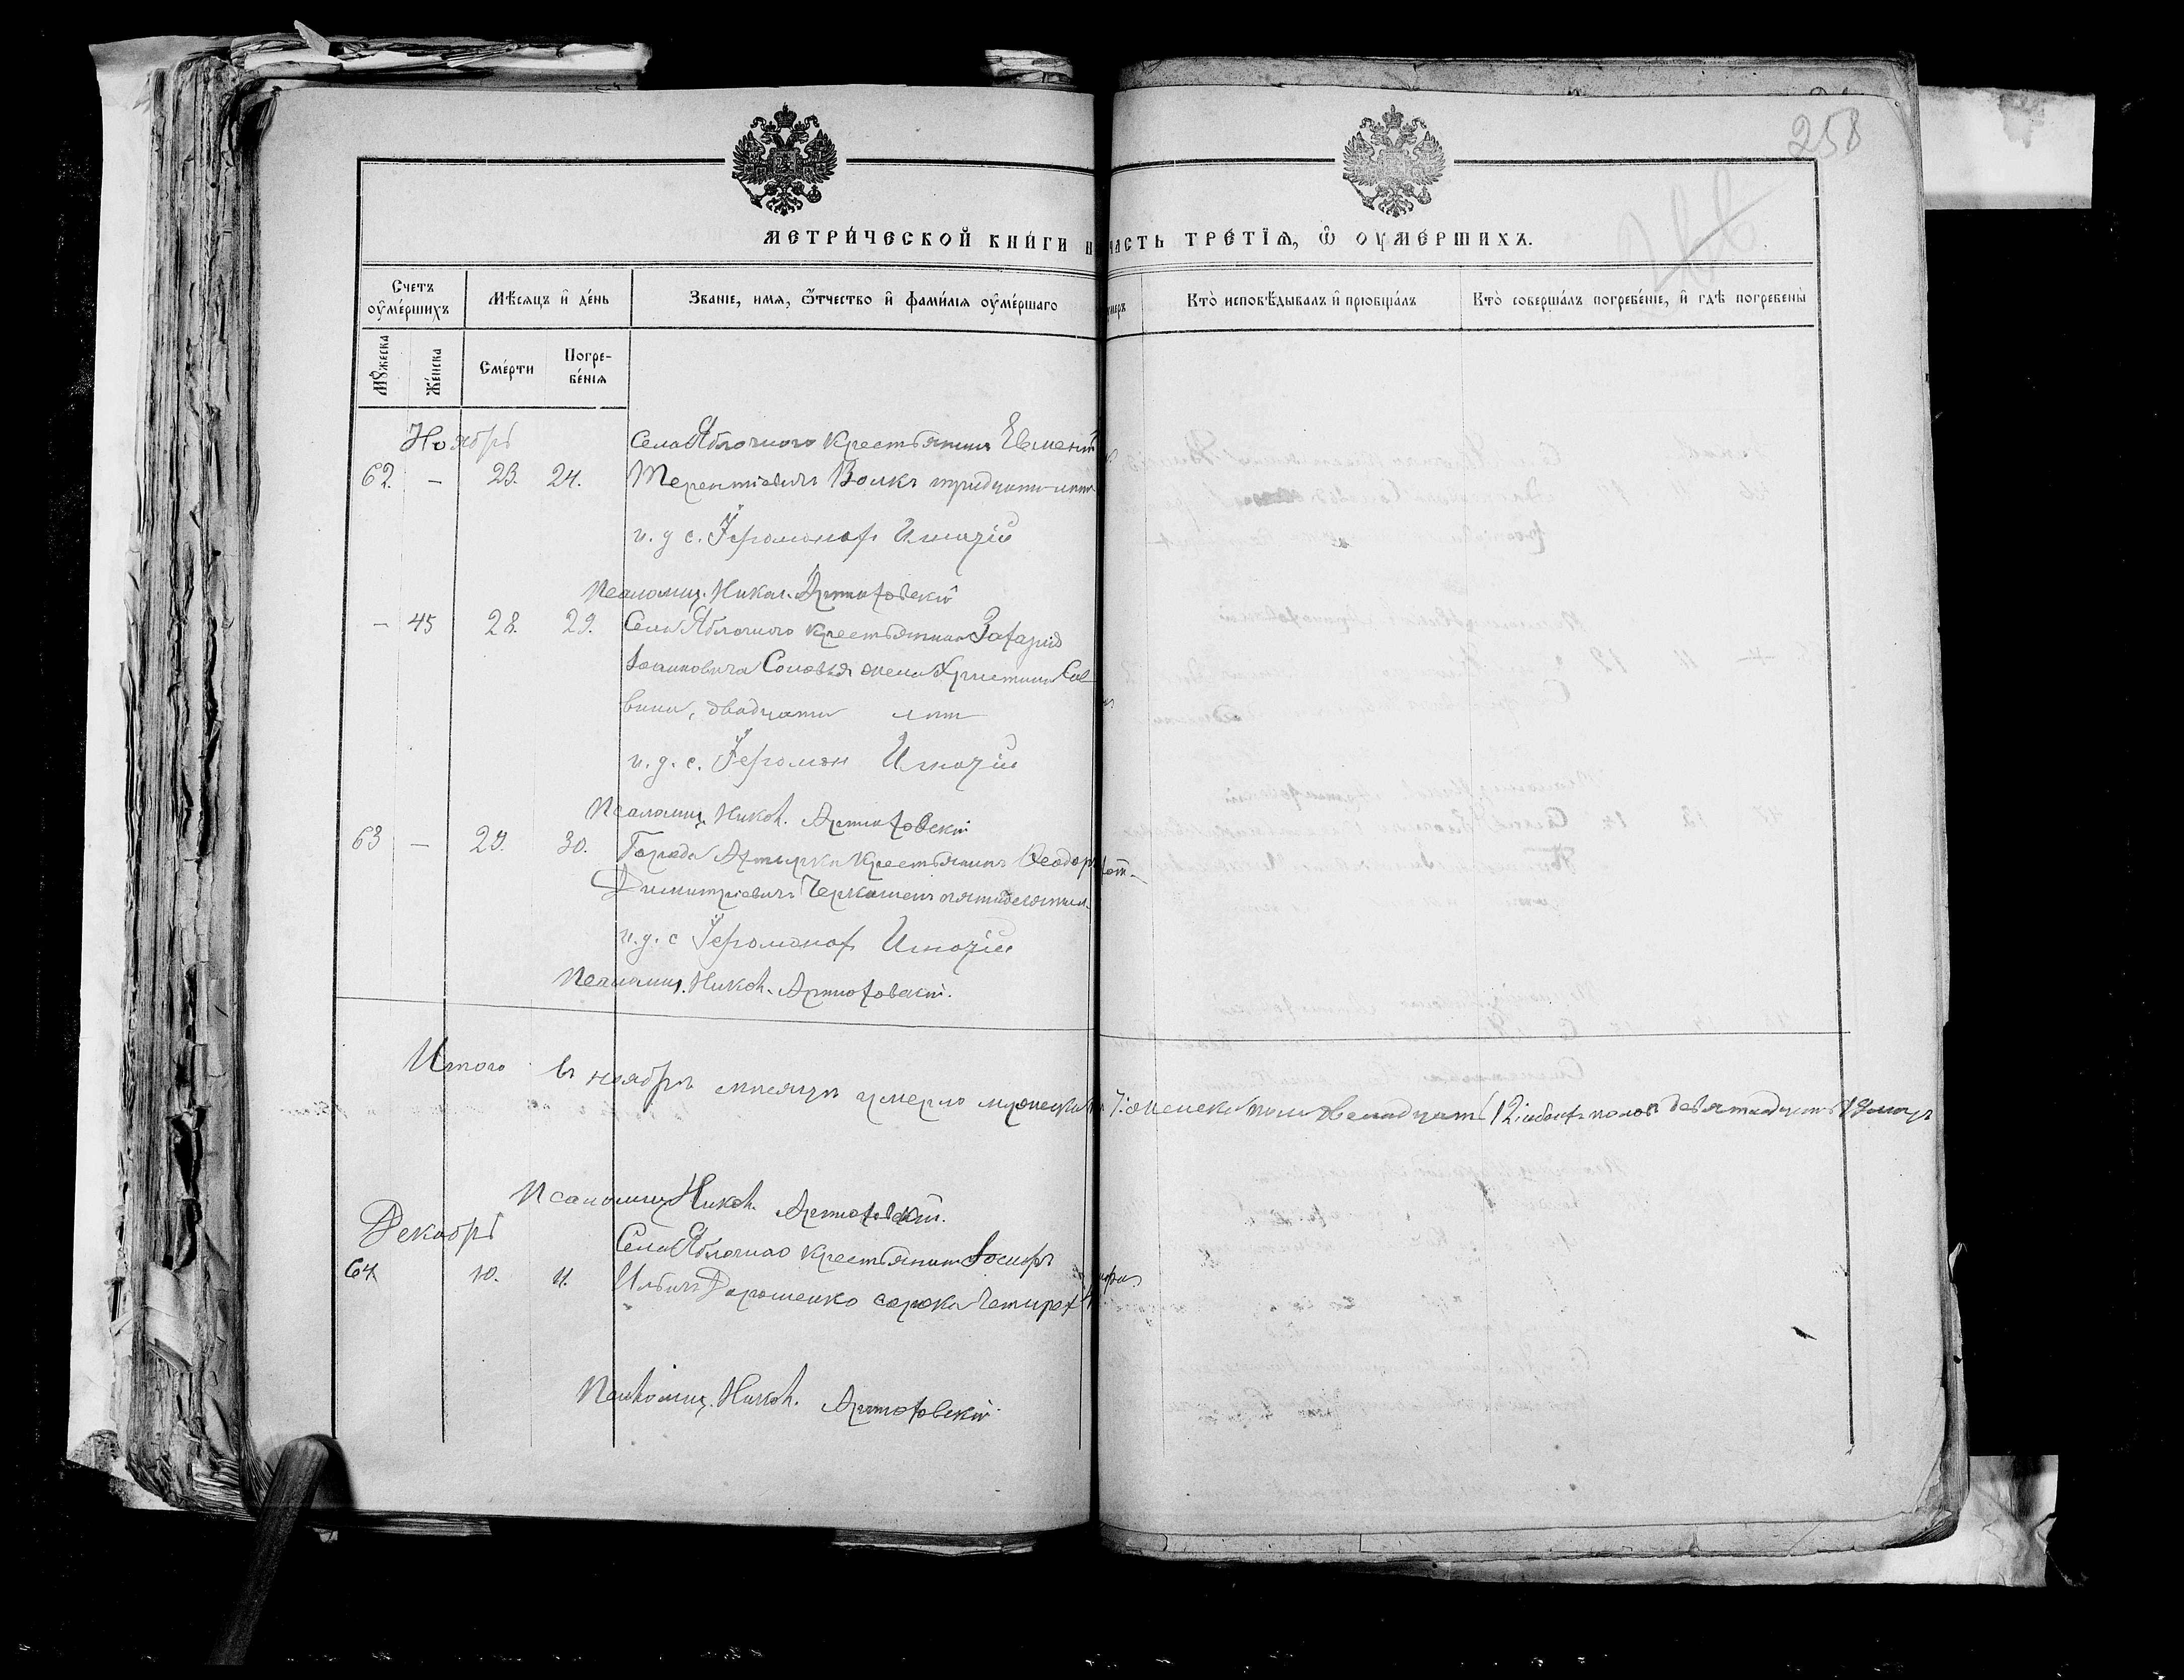 258
МЕТРИ́ЧЕСКОЙ КНИ́ГИ Н ЧАСТЬ ТРЕ́ТЇѦ, Ѿ ОУМЕ́РШИХЪ.
Счетъ оу҆ме́ршихъ
Мѣ́сяцъ и҆ де́нь
Званіе, имя, ѻ҆́тчество и҆ фами́лїѧ оу҆ме́ршаго
умеръ
Кто̀ исповѣ́дывалъ и҆ прїобща́лъ
Кто̀ соверша́лъ погребе́нїе, и҆ гдѣ̀ погребены̀
Мꙋ́жеска
Же́нска
Сме́рти
Погре-
бе́нїѧ
Ноябрь
Села Яблочного крестьянинъ Евменій
62. – 23. 24. Терентіевичъ Волкъ тридцати лѣтъ
и. д с. Іеромонах Игнатій
Псаломщ. Никол. Артюховскій
– 45 28. 29. Села Яблочного крестьянина Захарія
Іоанновича Соловья жена Христина Сав
вина, двадцати лѣт
и. д. с. Іеромон Игнатій
Псаломщ. Никол. Артюховскій
63 – 29. 30. Города Ахтырки крестьянинъ Ѳеодоръ
Димитріевичъ Черкашенъ пятидесяти л.
и. д. с Іеромонах Игнатій
Псаломщ. Никол. Артюховскій.
Итого въ ноябрѣ мѣсяцѣ умерло мужеска 7. женска пола двенадцать 12. обоихъ половъ девятнадцать 19 лицъ
Псаломщ Никол. Артюховскій.
Декабрь
Села Яблочнаго крестьянин Іосифъ
64. 10. 11. Ильичъ Дорошенко сорока четырех
Псаломщ. Никол. Артюховскій